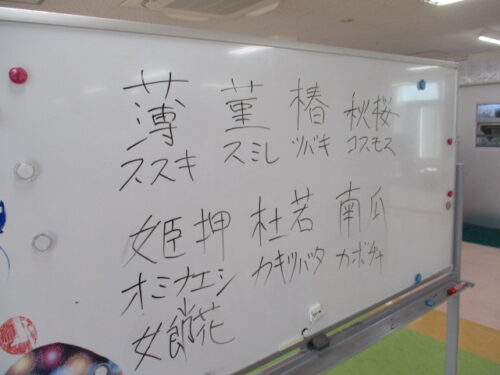 薄 菫 椿 秋桜
ススキ スミレ ツバキ コスモス
姫押 杜若 南瓜
オミナエシ カキツバタ カボチャ
女餉花